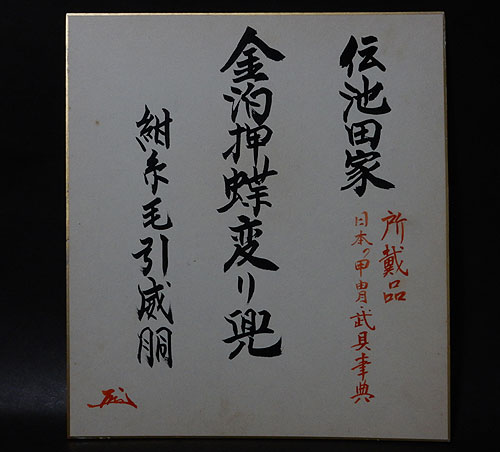 伝池田家
所戴品
日本の甲冑・武具事典
金泊押蝶変り兜
紺糸毛引威胴